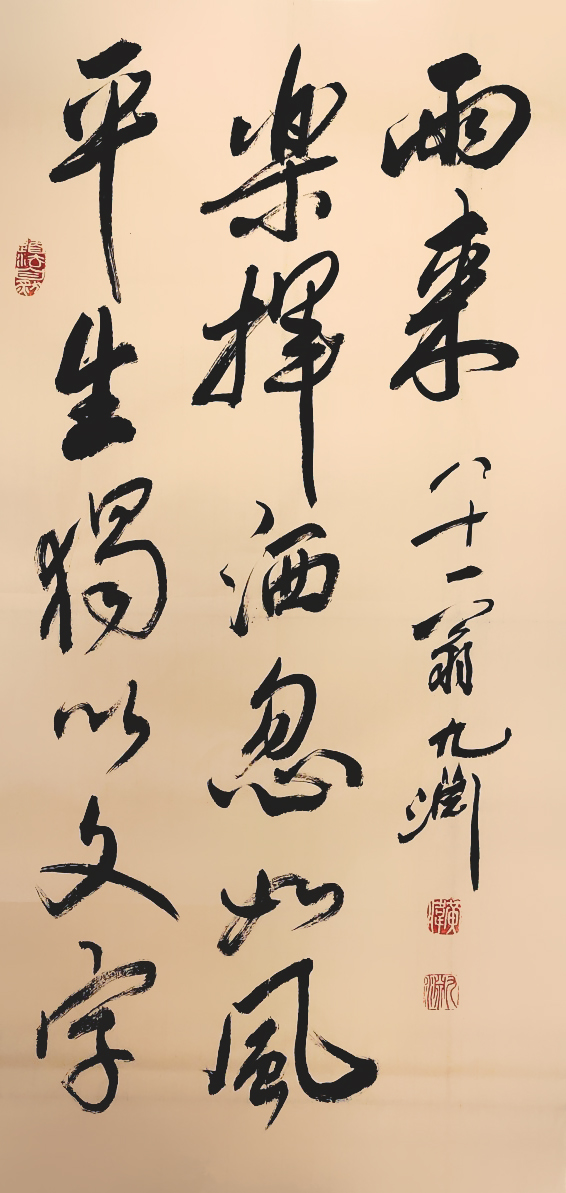 平生獨以文字
樂揮洒忽如風
雨來
八十一翁九淵